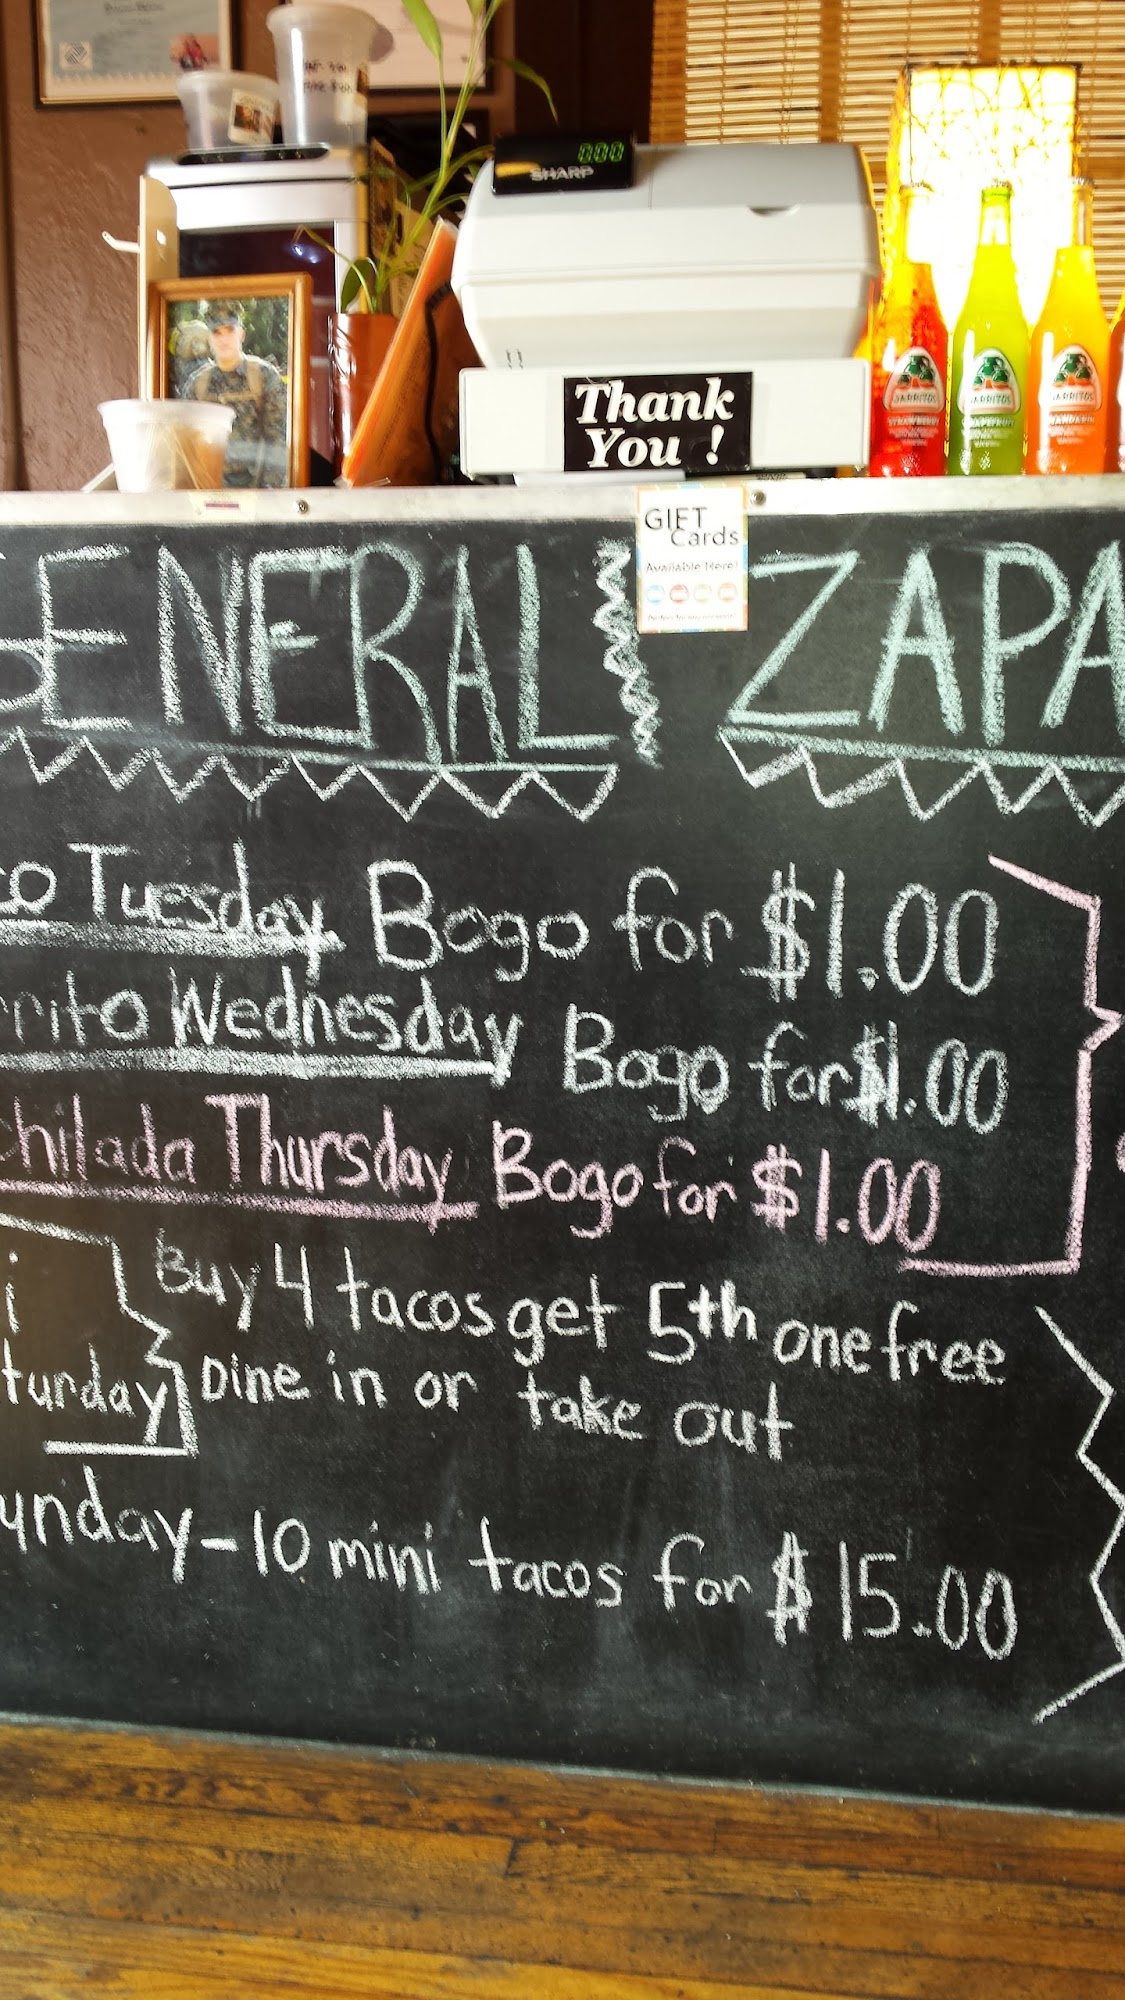 SHARP
000
Thank
You !
JARRITOS
STRAWBERRY
JARRITOS
GRAPEFRUIT
JARRITOS
MANDARIN
GIFT
Cards
Available Here!
GENERAL ZAPA
co Tuesday Bogo for $1.00
rrito Wednesday Bogo for $1.00
chilada Thursday Bogo for $1.00
i
turday
Buy 4 tacos get 5th one free
Dine in or take out
unday - 10 mini tacos for $15.00